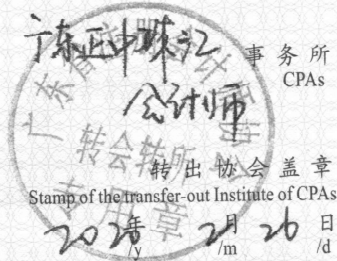 广东正中珠江
事务所
CPAs
会计师
转会转所
专用章
转出协会盖章
Stamp of the transfer-out Institute of CPAs
2020年 2月 26日
/y /m /d